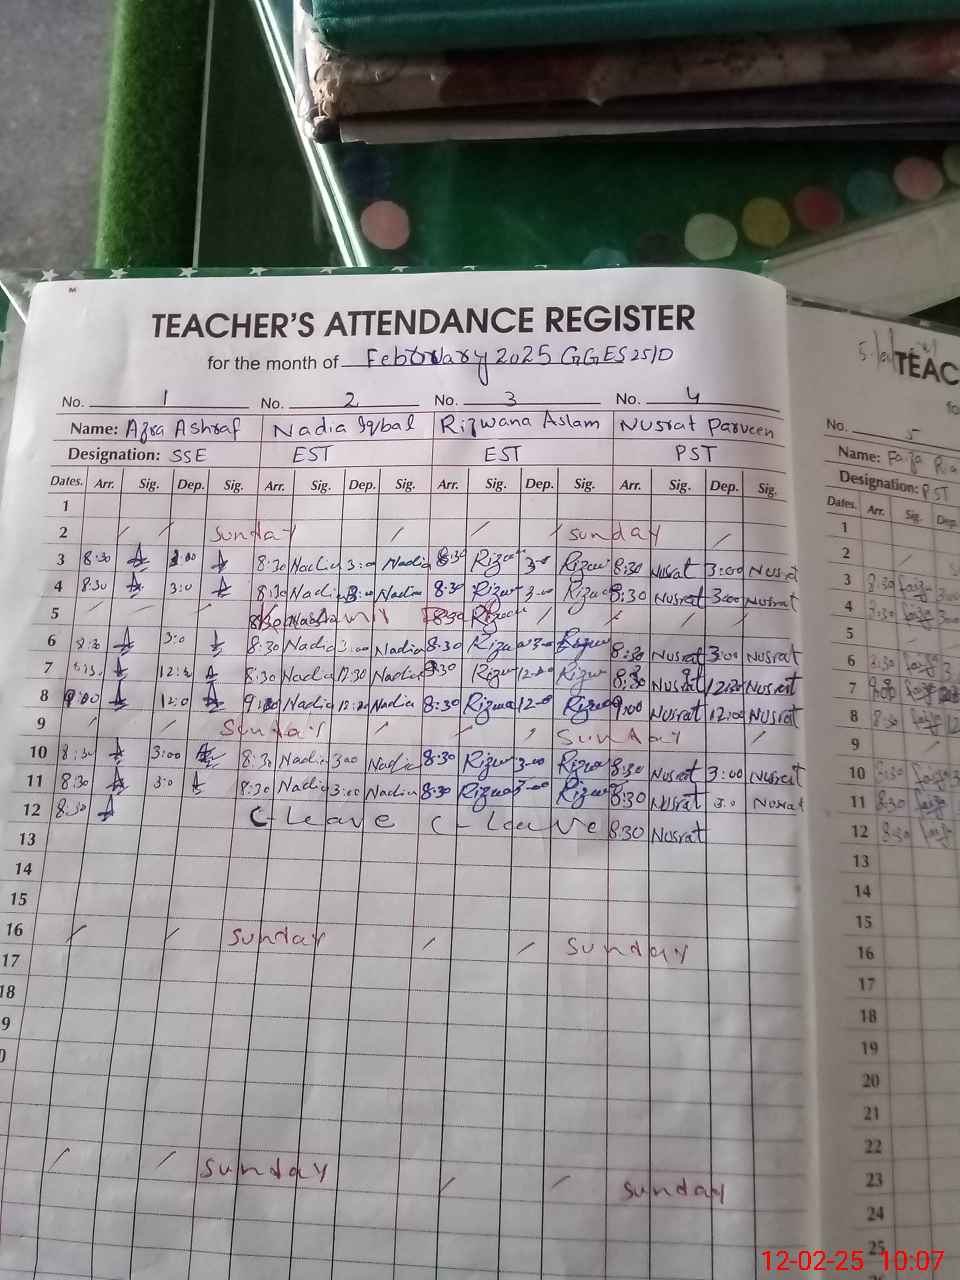 TEACHER'S ATTENDANCE REGISTER
for the month of February 2025 GGES 25/D
No. 1 No. 2 No. 3 No. 4
Name: Azra Ashraf Nadia Iqbal Rizwana Aslam Nusrat Parveen
Designation: SSE EST EST PST
Dates. Arr. Sig. Dep. Sig. Arr. Sig. Dep. Sig. Arr. Sig. Dep. Sig. Arr. Sig. Dep. Sig.
1
2 Sunday Sunday
3 8:30 8:30 Nadia 3:00 Nadia 8:30 Rizwa 3-0 Rizwa 8:30 Nusrat 3:00 Nusrat
4 8:30 3:0 8:30 Nadia 3:00 Nadia 8:30 Rizwa 3-00 Rizwa 8:30 Nusrat 3:00 Nusrat
5 8:30 8:30 Rizwa
6 8:30 3:0 8:30 Nadia 3:00 Nadia 8:30 Rizwa 3-00 Rizwa 8:30 Nusrat 3:00 Nusrat
7 8:30 12:30 8:30 Nadia 12:30 Nadia 8:30 Rizwa Rizwa 8:30 Nusrat 12:30 Nusrat
8 9:00 12:0 Nadia Nadia 8:30 Rizwa 12-0 Rizwa 9:00 Nusrat 12:00 Nusrat
9 Sunday Sunday
10 8:30 3:00 8:30 Nadia 3:00 Nadia 8:30 Rizwa 3-00 Rizwa 8:30 Nusrat 3:00 Nusrat
11 8:30 3:0 8:30 Nadia 3:00 Nadia 8:30 Rizwa 3-00 Rizwa 8:30 Nusrat 3:0 Nusrat
12 8:30 C-Leave C-Leave 8:30 Nusrat
13
14
15
16 Sunday Sunday
17
18
9
0
Sunday Sunday
TEAC
fo
No. 5
Name: Faiza Ria
Designation: PST
Dates. Arr. Sig. Dep.
1
2
3 8:30
4 8:30
5
6 8:30
7
8 8:30
9
10 8:30
11 8:30
12 8:30
13
14
15
16
17
18
19
20
21
22
23
24
25
12-02-25 10:07